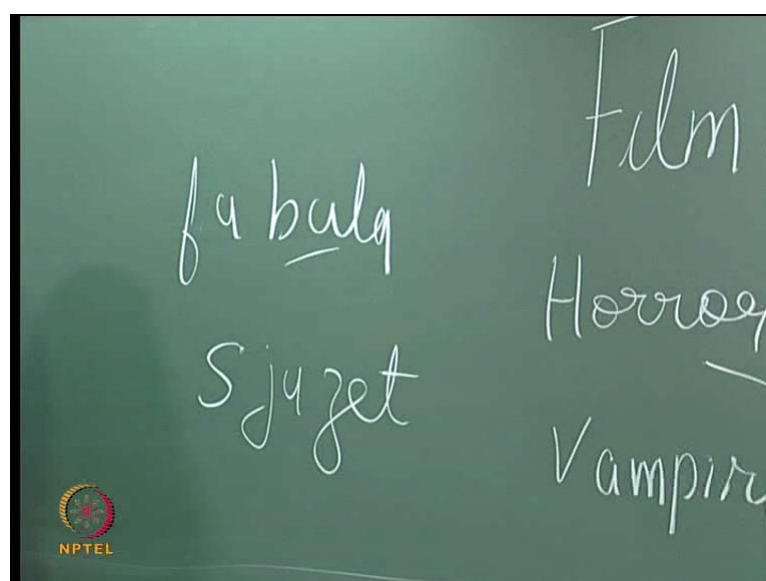 fabula
Sjuzet
Film
Horror
Vampir
NPTEL